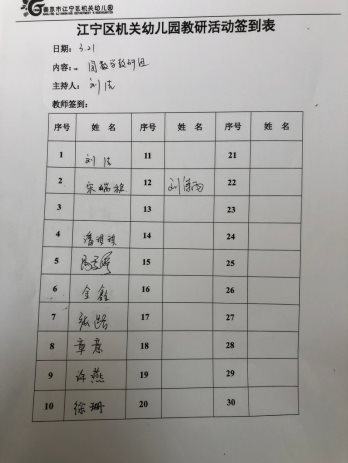 南京市江宁区机关幼儿园
江宁区机关幼儿园教研活动签到表
日期： 3.21
内容： 园数学教研组
主持人： 刘洁
教师签到：
序号 姓 名 序号 姓 名 序号 姓 名
1 刘洁 11 21
2 宋瑞栋 12 刘沛雨 22
3 13 23
4 潘琪琪 14 24
5 15 25
6 金鑫 16 26
7 张璐 17 27
8 章意 18 28
9 许燕 19 29
10 徐珊 20 30